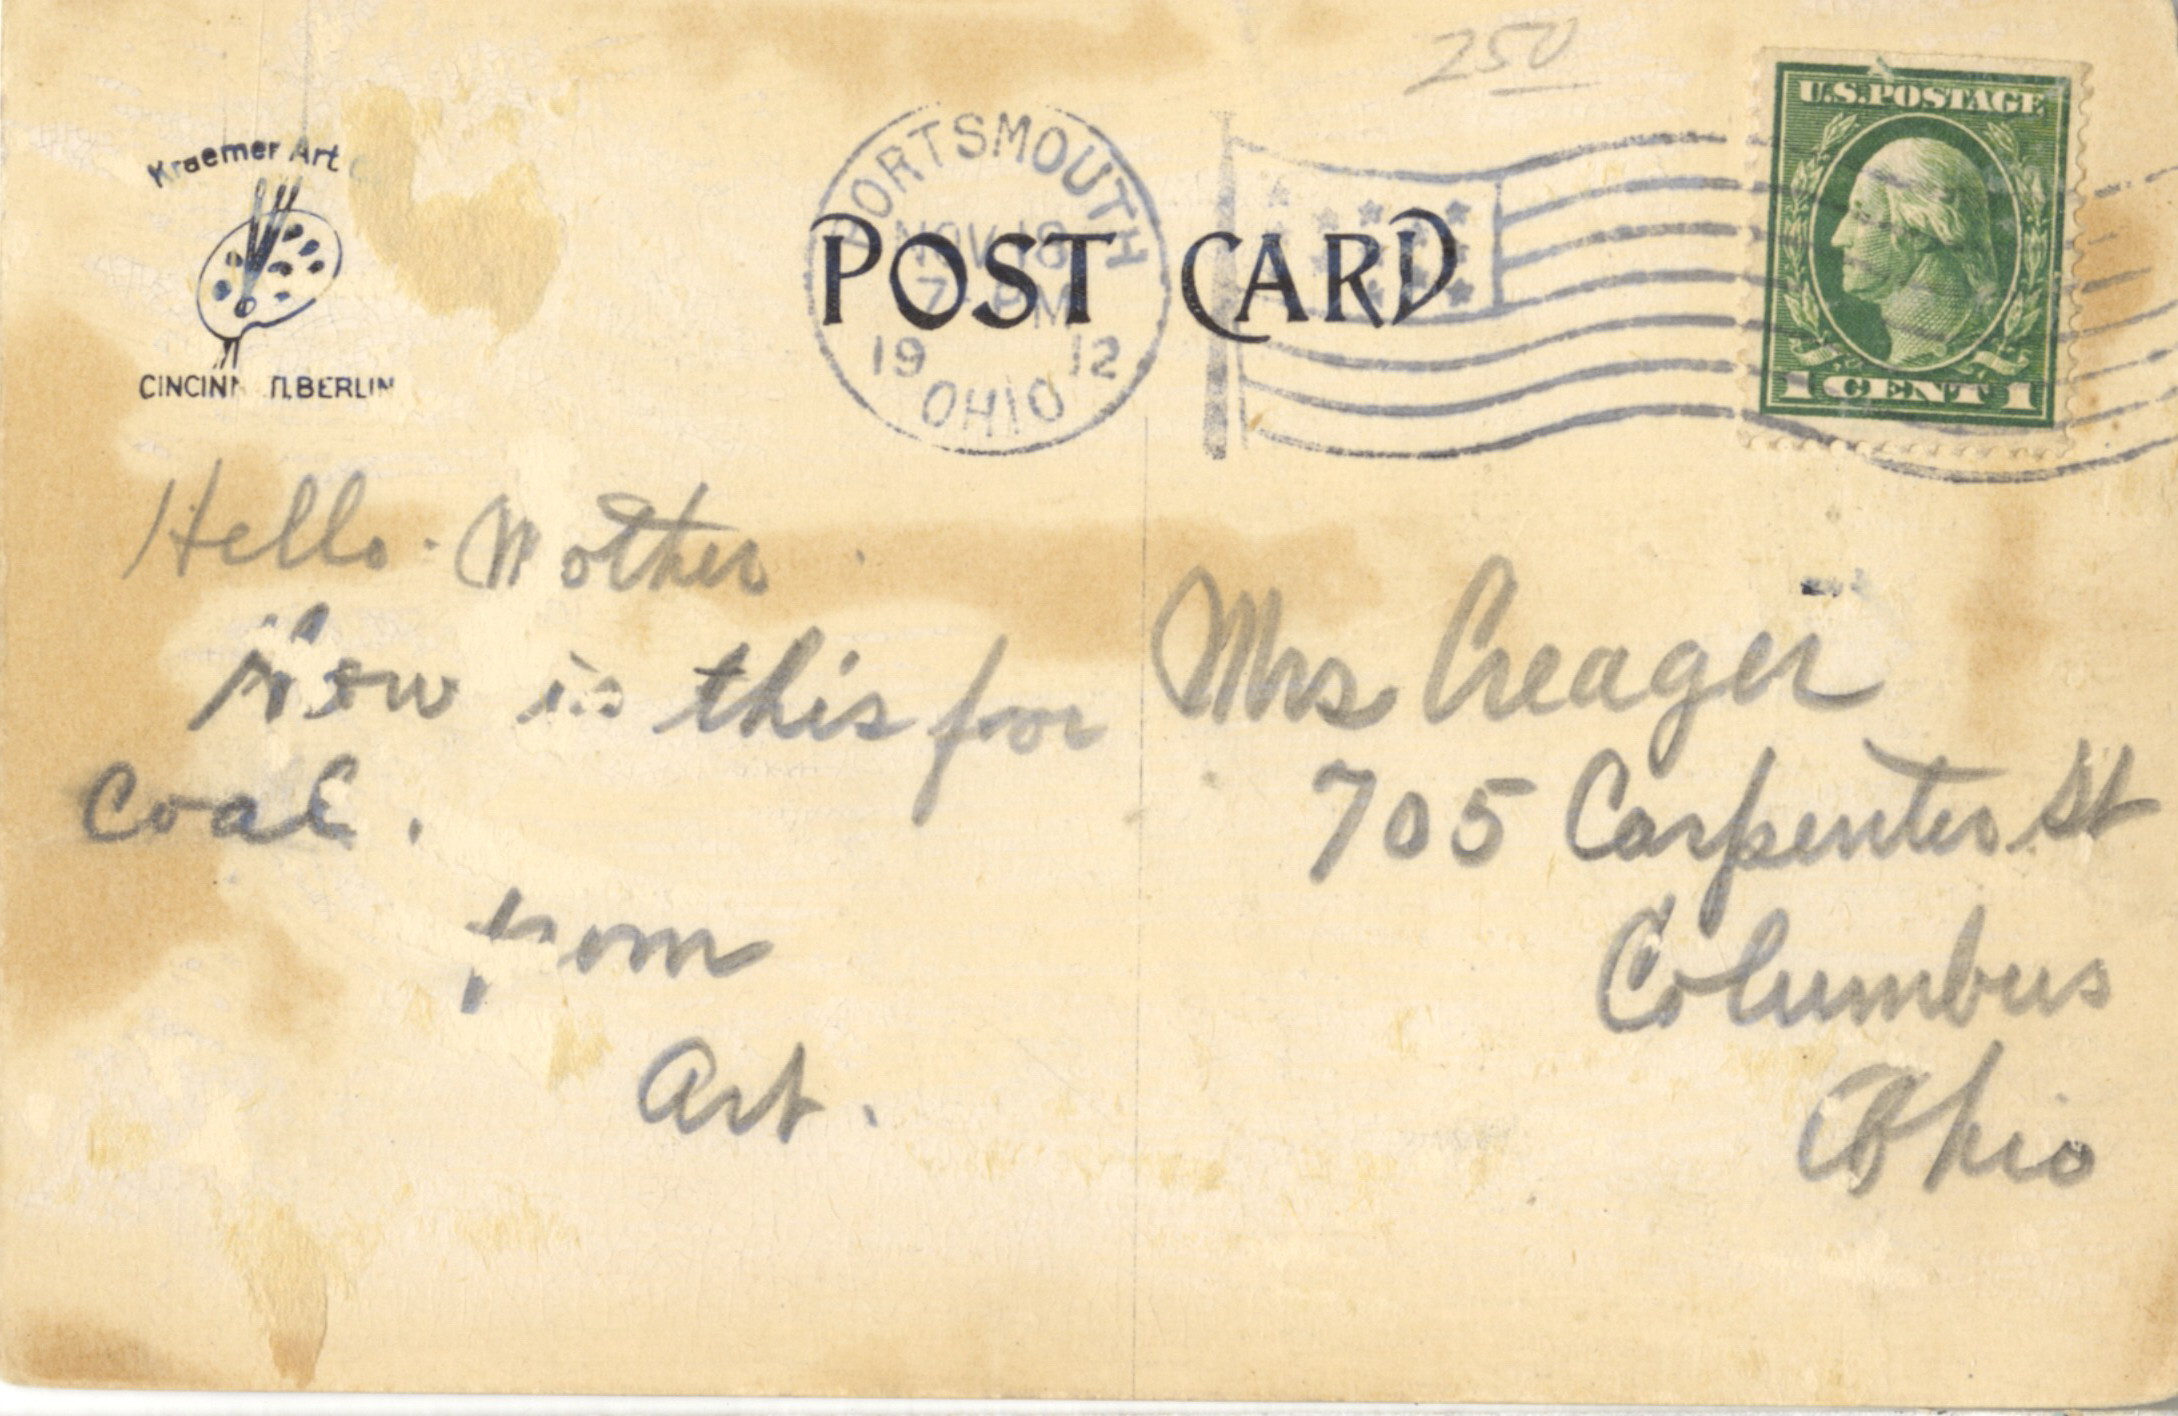 250
Kraemer Art
CINCINN TI.BERLIN
PORTSMOUTH
NOV 18
7 PM
19 12
OHIO
POST CARD
U.S.POSTAGE
1 CENT 1
Hello Mother
How is this for
coal.
from
Art.
Mrs Creager
705 Carpenter St
Columbus
Ohio